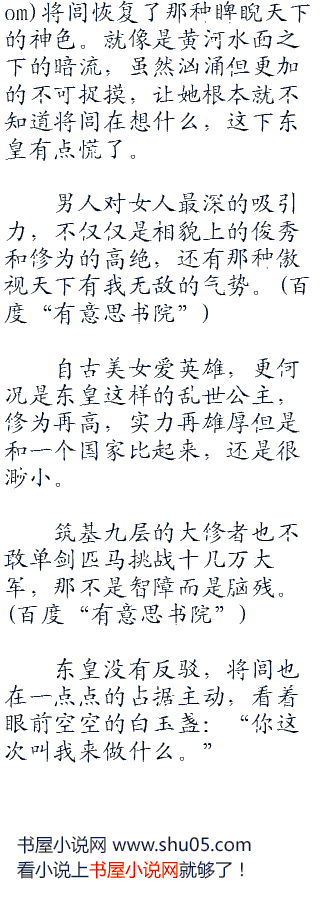 om)将闾恢复了那种睥睨天下
的神色。就像是黄河水面之
下的暗流，虽然汹涌但更加
的不可捉摸，让她根本就不
知道将闾在想什么，这下东
皇有点慌了。
男人对女人最深的吸引
力，不仅仅是相貌上的俊秀
和修为的高绝，还有那种傲
视天下有我无敌的气势。(百
度“有意思书院”)
自古美女爱英雄，更何
况是东皇这样的乱世公主，
修为再高，实力再雄厚但是
和一个国家比起来，还是很
渺小。
筑基九层的大修者也不
敢单剑匹马挑战十几万大
军，那不是智障而是脑残。
(百度“有意思书院”)
东皇没有反驳，将闾也
在一点点的占据主动，看着
眼前空空的白玉盏：“你这
次叫我来做什么。”
书屋小说网 www.shu05.com
看小说上书屋小说网就够了！